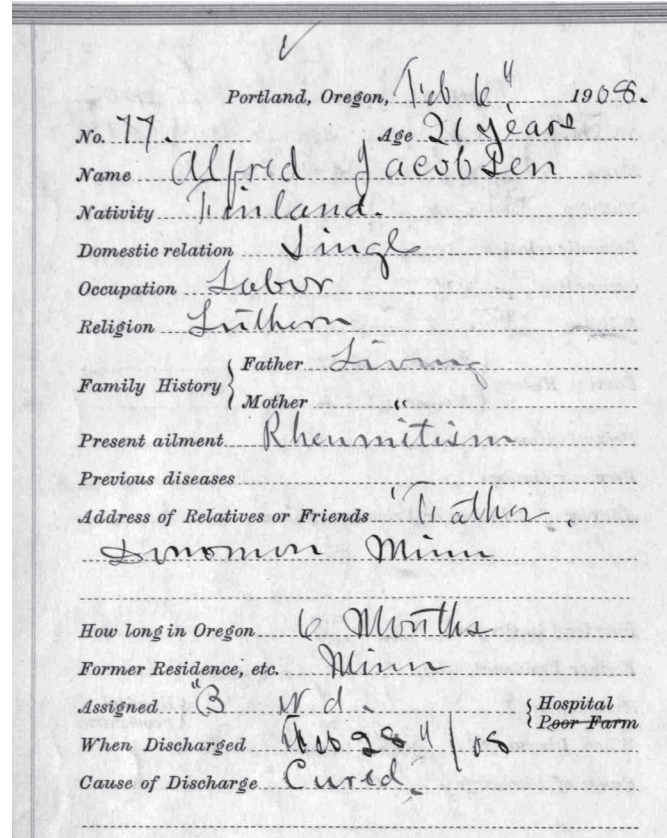 Portland, Oregon, Feb 6" 1908.
No. 77. Age 21 years
Name Alfred Jacobsen
Nativity Finland.
Domestic relation Single
Occupation Labor
Religion Luthern
Family History { Father Living
Mother "
Present ailment Rheumitism
Previous diseases
Address of Relatives or Friends Father.
Minn
How long in Oregon 6 Months
Former Residence, etc. Minn
Assigned "B Wd. { Hospital
Poor Farm
When Discharged Feb 28"/08
Cause of Discharge Cured